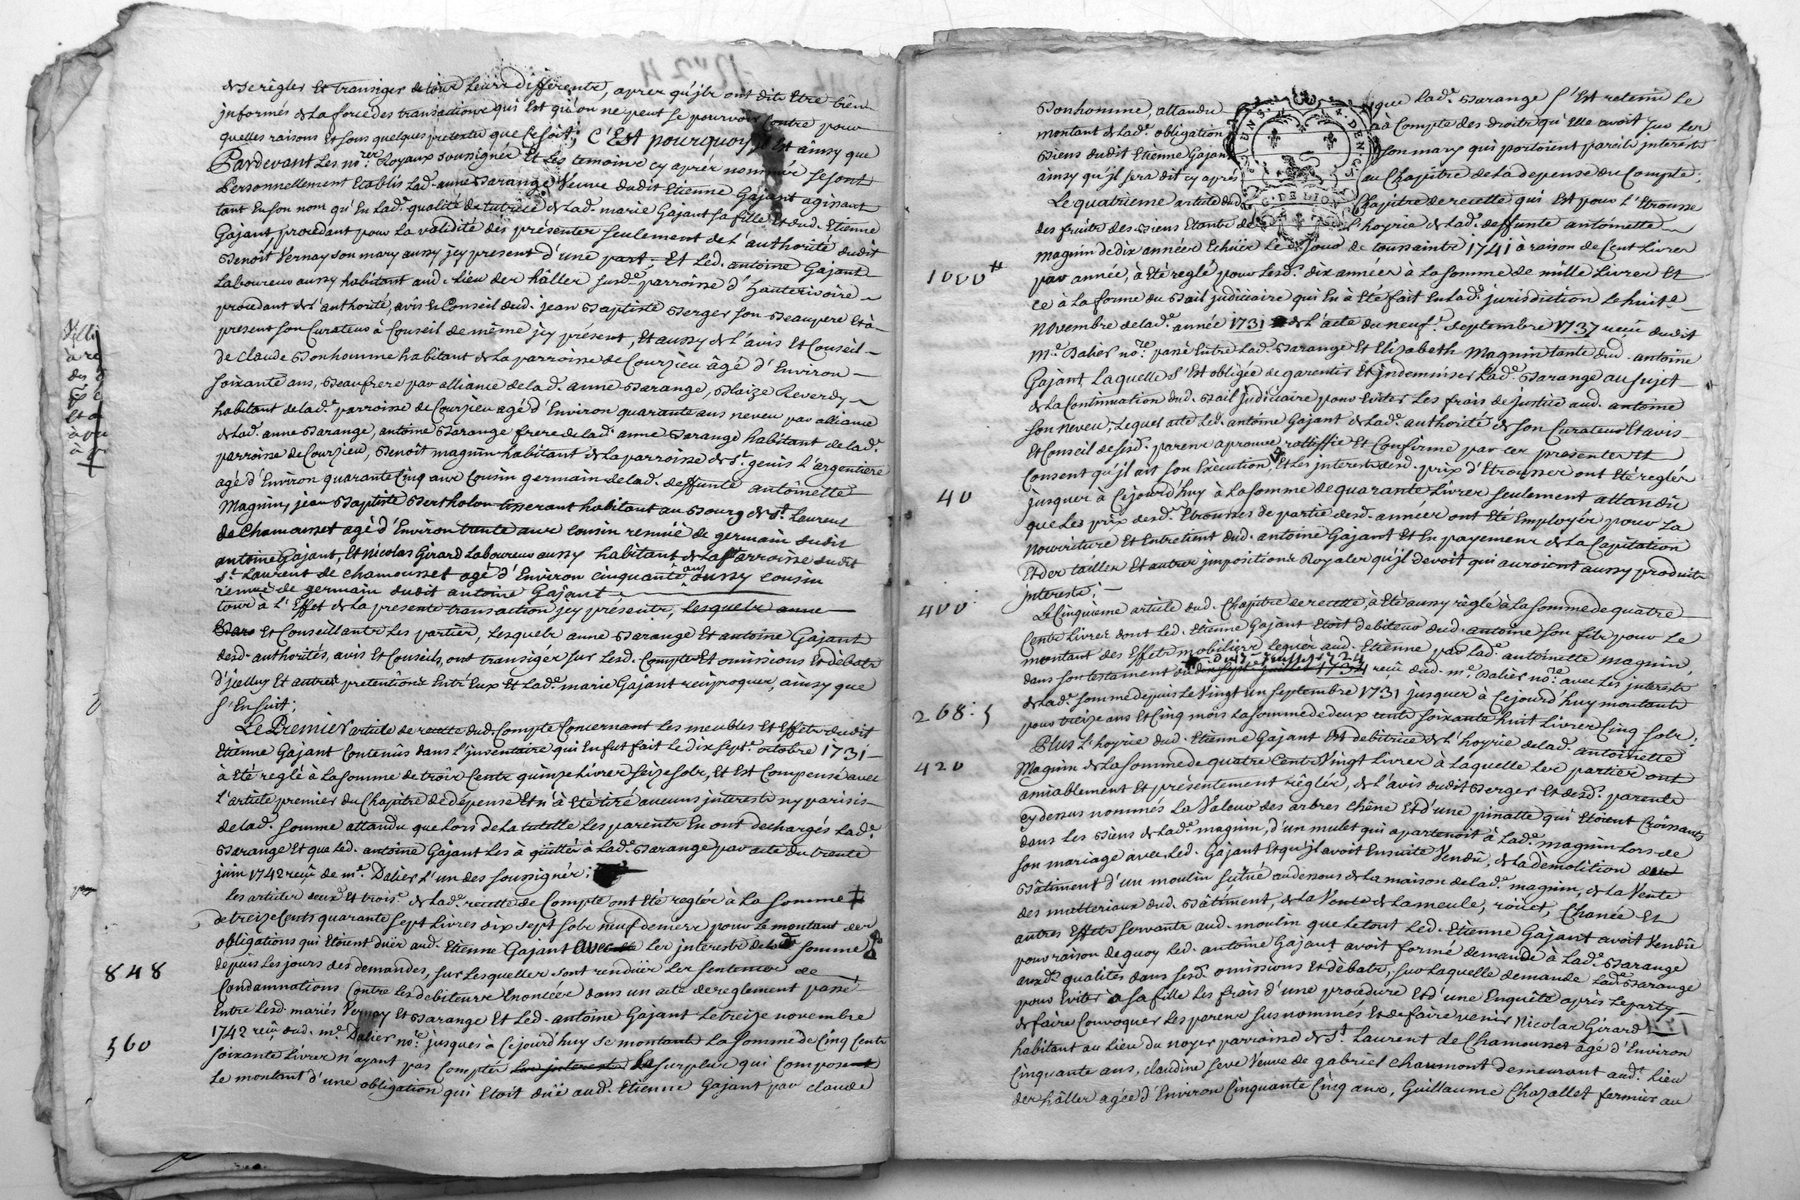 de se règler et transiger de tous leurs differents, apres qu'jls ont dit etre bien
jnformés de la force des transactions qui est qu'on ne peut se pourvoir contre pour
quelles raisons et sous quelques pretextes que ce soit; C'Est pourquoy il est ainsy que
Pardevant Les no.res Royaux soussignés et Les temoins cy aprés nommés se sont
Personnellement Etablis Lad. anne Barange Veuve dudit Etienne Gajant agissant
tant En son nom qu'En Lad.e qualité de tutrice de Lad. marie Gajant sa fille et dud. Etienne
Gajant procedant pour La validité des presentes seulement de L'authorité dudit
Benoit Vernay son mary aussy jcy present d'une part; Et Led. antoine Gajant
Laboureur aussy habitant aud. Lieu des halles susd.e parroisse d'Hauterivoire
procedant de L'authorité, avis et Conseil dud. jean Baptiste Berger son Beaupere Et à
present son Curateur à Conseil de même jcy present, Et aussy de L'avis et Conseil
de Claude Bonhomme habitant de La parroisse de Courzieu âgé d'Environ
soixante ans, Beaufrere par alliance de lad. anne Barange, Blaize Reverdy
habitant de lad.e parroisse de Courzieu agé d'Environ quarante ans neveu par alliance
de Lad. anne Barange, antoine Barange frere de lad. anne Barange habitant de lad.e
parroisse de Courzieu, Benoît magnin habitant de La parroisse de S.t genis L'argentiere
agé d'Environ quarante Cinq ans Cousin germain de lad. deffunte antoinette
Magnin, jean Baptiste Bertholon tisserant habitant au Bourg de S.t Laurent
de Chamousset agé d'Environ trente ans cousin remué de germain dudit
antoine Gajant, Et Nicolas Girard Laboureur aussy habitant de La Parroisse dudit
S.t Laurent de chamousset agé d'Environ cinquante ans aussy cousin
remué de germain dudit antoine Gajant
tous à L'Effet de La presente transaction jcy presents, Lesquels anne
Bara Et Conseillants Les parties, Lesquels anne Barange Et antoine Gajant
desd. authorités, avis Et Conseils, ont transigés sur Lesd. Comptes Et omissions Et debats
d'jcelluy Et autres pretentions Entr'Eux Et Lad.e marie Gajant reciproques, ainsy que
S'En suit;
Le Premier article de recette dud. Compte Concernant Les meubles Et Effets dudit
Etienne Gajant Contenûs dans L'jnventaire qui En fut fait Le dix sept.e octobre 1731
à Eté reglé à La somme de trois Cents quinze Livres seize sols, Et Est Compensé avec
L'article premier du Chapitre de dépense Et n'à Eté tiré aucuns jnterests ny parisis
de lad. somme attandu que Lors de La tutelle Les parents En ont dechargés Lad.e
Barange Et que Led. antoine Gajant Les à quittés à Lad.e Barange par acte du trente
juin 1742 reçû de m.e Dalier L'un des soussignés;
Les articles deux Et trois.e de Lad.e recette de Compte ont Eté reglés à La somme
de treize Cents quarante sept Livres dix sept sols neuf deniers pour Le montant des
obligations qui Etoient duës aud. Etienne Gajant avec Les jnterests de lad.e somme
depuis Les jours des demandes, sur Lesquelles sont renduës Les sentences de
848
Condamnations Contre Les debiteurs Enoncées dans un acte de reglement passé
Entre Lesd. mariés Vernay Et Barange Et Led. antoine Gajant Le treize novembre
1742 reçû dud. m.e Dalier no.re jusques à Cejourd'huy se montants La somme de Cinq Cents
560
soixante Livres n'ayant pas Compté Les jnterests du surplus qui Composent
Le montant d'une obligation qui Etoit duë aud. Etienne Gajant par Claude
Bonhomme, attandu que Lad.e Barange s'Est retenuë Le
montant de Lad.e obligation à Compte des droits qu'Elle avoit sur Les
Biens dudit Etienne Gajant son mary qui portoient pareils jnterests
ainsy qu'jl sera dit cy aprés au Chapitre de La depense du Compte.
Le quatrieme article dud. Chapitre de recette qui Est pour L'Etrousse
des fruits des Biens Etants de L'hoyrie de Lad.e deffunte antoinette
magnin de dix années Echuës Le jour de toussaints 1741 à raison de Cent Livres
1000tt
par année, à Eté reglé pour Lesd.s dix années à La somme de mille Livres Et
ce à La forme du Bail judiciaire qui En à Eté fait En Lad.e jurisdiction Le huit.e
Novembre de lad.e année 1731 de L'acte du neuf.e septembre 1737 reçû dudit
M.e Dalier no.re passé Entre Lad.e Barange Et Elizabeth Magnin tante dud. antoine
Gajant Laquelle s'Est obligée de garentir Et jndemniser Lad.e Barange au sujet
de La Continuation dud. Bail judiciaire pour Eviter Les frais de justice aud. antoine
son neveu, Lequel acte Led. antoine Gajant de Lad.e authorité de son Curateur Et avis
Et Conseil de sesd.s parens aprouve ratiffie Et Confirme par ces presentes Et
Consent qu'jl ait son Execution, Et Les jnterests desd. prix d'Etrousses ont Eté reglés
40
jusques à Cejourd'huy à La somme de quarante Livres seulement attandu
que Les prix desd.s Etrousses de partie desd. années ont Eté Employés pour La
nourriture Et Entretient dud. antoine Gajant Et En payement de La Capitation
Et des tailles Et autres jmpositions Royales qu'jl devoit qui auroient aussy produits
jnterests;
400
Le Cinquieme article dud. Chapitre de recette, à Eté aussy règlé à La somme de quatre
Cents Livres dont Led. Etienne Gajant Etoit debiteur dud. antoine son fils pour Le
montant des Effets mobiliers Legués aud. Etienne par Lad.e antoinette magnin
dans son testament reçû dud. m.e Dalier no.re avec Les jnterests
268:5
de Lad.e somme depuis Le Vingt un septembre 1731 jusques à Cejourd'huy montants
pour treize ans Et Cinq mois La somme de deux cents soixante huit Livres Cinq sols.
Plus L'hoyrie dud. Etienne Gajant Est debitrice de L'hoyrie de lad. antoinette
420
Magnin de La somme de quatre Cents Vingt Livres à Laquelle Les parties ont
amiablement Et présentement règlés, de L'avis dudit Berger Et desd.s parents
cy dessus nommés La Valeur des arbres chêne Et d'une pinatte qui Etoient Croissants
dans Les Biens de Lad.e magnin, d'un mulet qui apartenoit à Lad.e magnin Lors de
son mariage avec Led. Gajant Et qu'jl avoit Ensuite Vendû, de La démolition du
Bâtiment d'un moulin situé au dessous de La maison de lad.e magnin, de La Vente
des matteriaux dud. Bâtiment, de La Vente de La meule, roüet, Chanée Et
autres Effets servants aud. moulin que Le tout Led. Etienne Gajant avoit Vendû
pour raison de quoy Led. antoine Gajant avoit formé demande à Lad.e Barange
auxd.s qualités dans sesd. omissions Et débats, sur Laquelle demande Lad.e Barange
pour Eviter à sa fille Les frais d'une procedure Et d'une Enquête aprés Le party
de faire Convoquer Les parens susnommés Et de faire venir Nicolas Girard
habitant au Lieu du noyer parroisse de S.t Laurent de Chamousset agé d'Environ
Cinquante ans, Claudine Seve Veuve de gabriel Chaumont demeurant aud.t Lieu
des hâlles agée d'Environ Cinquante Cinq ans, Guillaume Chazallet fermier au